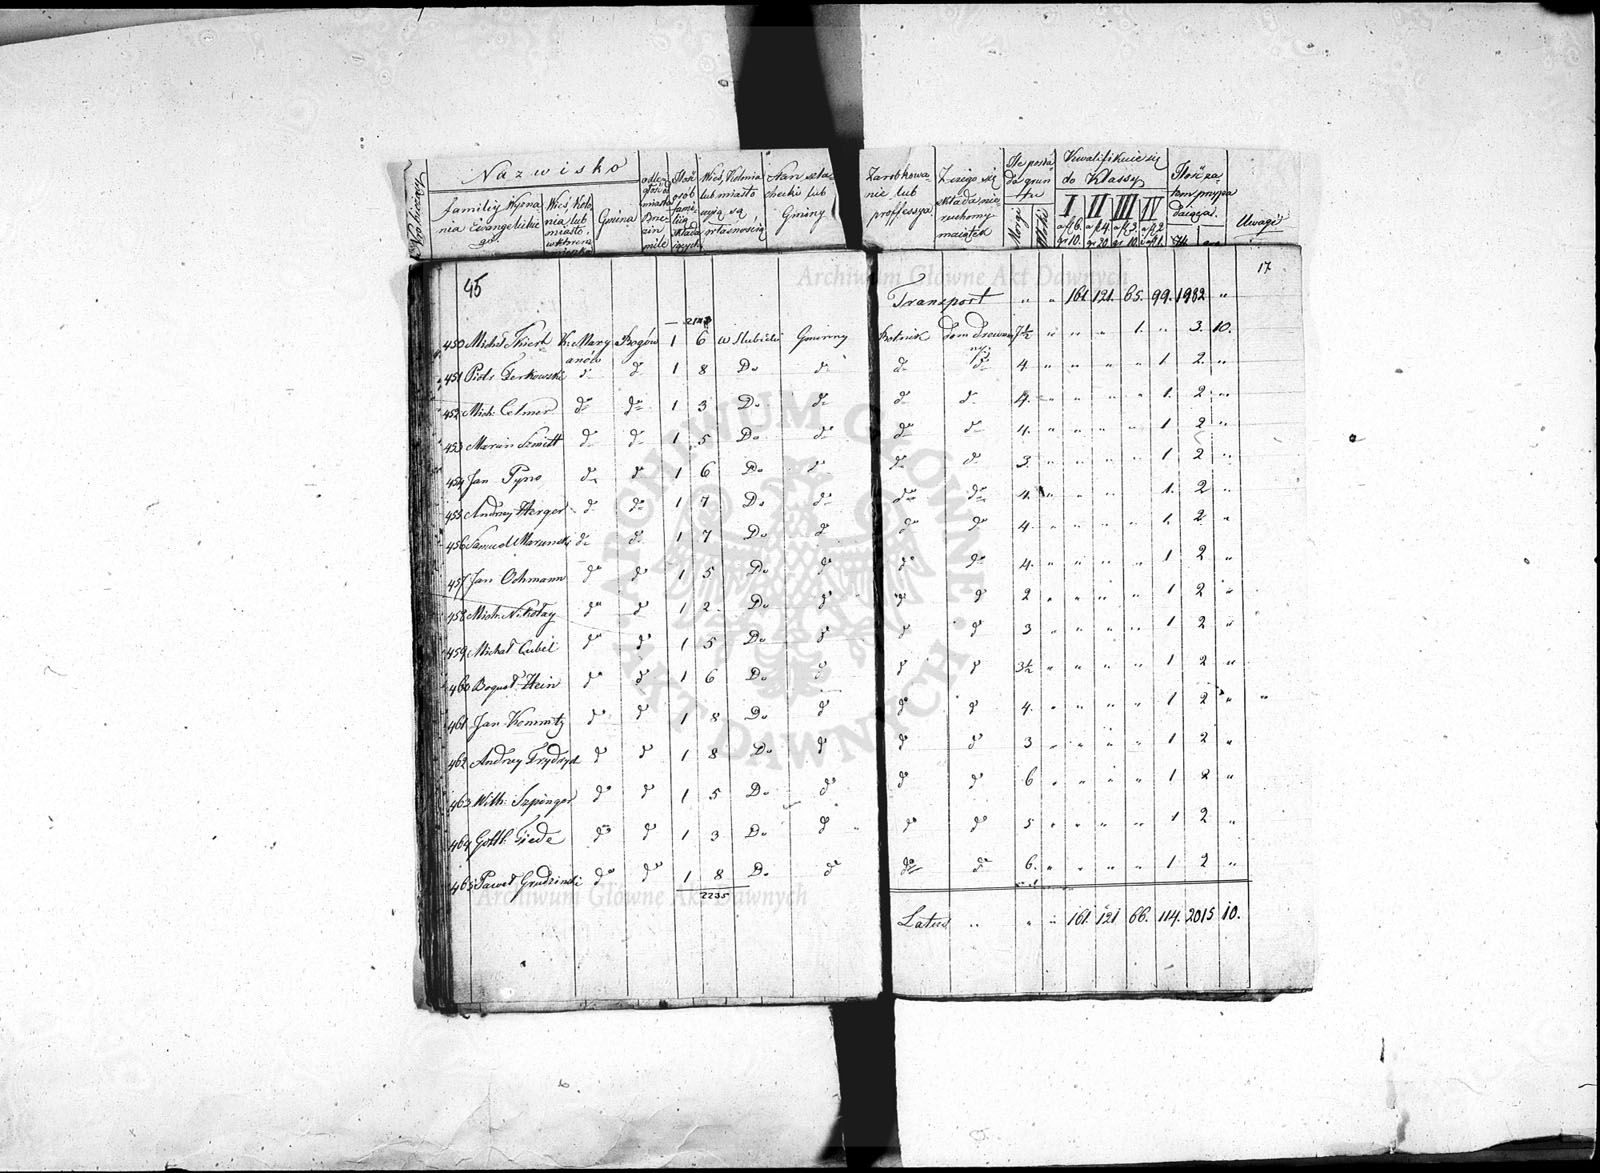 Nazwisko
familij Wyzna
nia Ewangelickie
go
Wieś Kolo
nia lub
miasto,
w którem
Gmina
odle
głość od
miasta
Brze
zin
mile
Ilość
osób
fami
lią
składa
jących
Wieś, Kolonia
lub miasto
czyią są
własnością
Stan szla
checki lub
Gminny
Zarobkowa
nie lub
professya
Z czego się
składa nie
ruchomy
maiątek
Ile posia
da grun
tu
Morgi
Kwalifikuie się
do Klassy
I II III IV
a fl 6. a fl 4. a fl 3. a fl 2
gr 10. gr 20. gr 10. i a fl 1.
Ilość za
tem przypa
daiąca
Uwagi
45
17
Archiwum Główne Akt Dawnych
Transport " " 161 121. 65. 99. 1982 "
450 Michał Thiert K. Mary Bogów 1 6 w Słubicki Gminny Rolnik dom drewnia 7½ " " " 1. " 3. 10.
anów ny
451 Piotr Derkowski do do 1 8 Do do do do 4 " " " " 1 2 "
452 Mich: Celmer do do 1 3 Do do do do 4. " " " " 1. 2 "
453 Marcin Szmitt do do 1 5 Do do do do 4. " " " " 1 2 "
454 Jan Pyno do do 1 6 Do do do do 3. " " " " 1 2 "
455 Andrzey Herger do do 1 7 Do do do do 4. " " " " 1. 2 "
456 Samuel Marunski do do 1 7 Do do do do 4. " " " " 1. 2 "
457 Jan Ochmann do do 1 5 Do do do do 4. " " " " 1 2 "
458 Mich: Nikołay do do 1 2. Do do do do 2 " " " " 1 2 "
459 Michał Gubel do do 1 5 Do do do do 3 " " " " 1 2 "
460 Bogusł. Hein do do 1 6 Do do do do 3½ " " " " 1 2 "
461 Jan Kemnitz do do 1 8 Do do do do 4. " " " " 1 2 " "
462 Andrzey Frydryd do do 1 8 Do do do do 3 " " " " 1 2 "
463 Wilh: Szpinger do do 1 5 Do do do do 6 " " " " 1 2 "
464 Gottl: Tiede do do 1 3 Do do do do 5 " " " " 1 2 "
465 Paweł Grudzinski do do 1 8 Do do do do 6. " " " " 1 2 "
2235
Archiwum Główne Akt Dawnych
Latus " " " 161. 121 66. 114. 2015 10.
ARCHIWUM GŁÓWNE AKT DAWNYCH